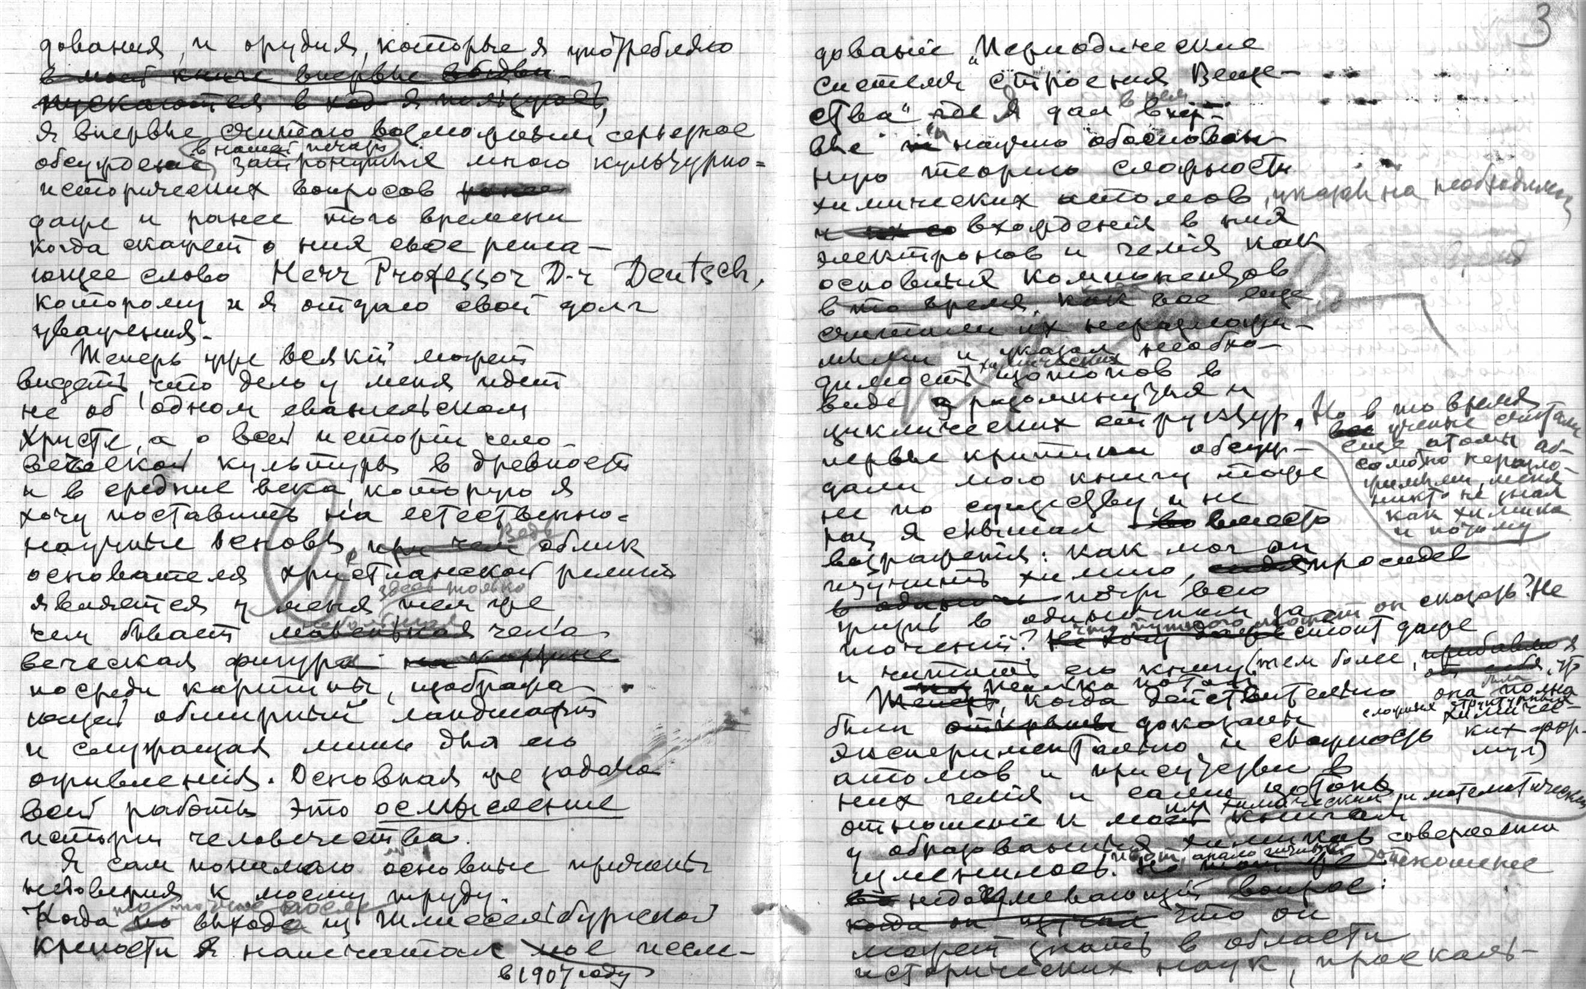 дования, и орудия, которые я употребляю
в моей книге впервые
пускаются в ход я
я впервые считаю возможным серьезное
в нашей печати
обсуждение затронутых мною культурно=
исторических вопросов ранее
даже и ранее того времени
когда скажет о них свое реша-
ющее слово Herr Professor D-r Deutsch,
которому и я отдаю свой долг
уважения.
Теперь уже всякий может
видеть что дело у меня идет
не об одном евангельском
Христе, а о всей истории чело-
веческой культуры в древности
и в средние века, которую я
хочу поставить на естественно=
научные основы, при чем облик
Ведь
основателя христианской религии
здесь только
является у меня тем же
чем бывает маленькая чело
веческая фигура на картине
посреди картины, изобража
ющей обширный ландшафт
и служащая лишь для его
оживления. Основная же задача
всей работы это осмысление
истории человечества.
Я сам понимаю основные причины
недоверия к моему труду.
Когда по выходе из Шлиссельбургской
крепости я напечатал мое иссле-
в 1907 году
3
дование „Периодические
системы строения Веще-
ства" где я дал впер-
в нем
вые и научно обоснован
ную теорию сложности
химических атомов, указал на необходимость
вхождения в них
электронов и гелия как
основных компонентов
в то время, как все еще
считали их неразложи-
мыми и указал необхо-
димость изотопов в
химических
виде разомкнутых и
циклических структур. Но в то время
все ученые считали
еще атомы аб-
солютно неразло-
жимыми, меня
никто не знал
как химика
и потому
первые критики обсуж-
дали мою книгу тоже
не по существу и не
раз я слышал вместо
возражения: как мог он
изучить химию, просидев
в одиночке почти всю
жизнь в одиночном за
точении? Что путного может он сказать? Не
стоит даже
и читать его книгу (тем более, прибавлю я
от себя, что
она была полна
сложных структурных
химичес-
ких фор-
мул)
Но потом, когда действительно
были открыты доказаны
экспериментально, и сложность
атомов и присутствие в
них гелия и сами изотопы
отношение к моим книгам
химическим и математическим
у образованных химиков совершенно
изменилось.
недоумевающий вопрос:
когда он изучал что он
может знать в области
исторических наук, проскаль-